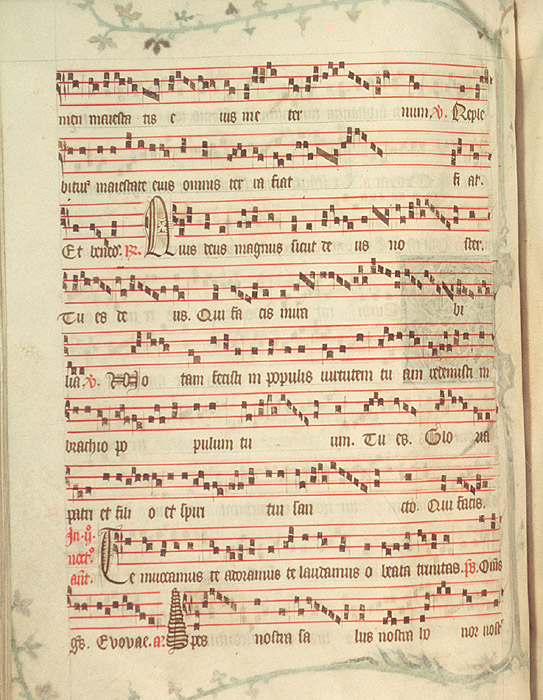 men maiesta tis e ius me ter num. V. Reple
bitur maiestate eius omnis ter ra fiat fi at.
Et bened. R. Quis deus magnus sicut de us no ster.
Tu es de us. Qui fa cis mira bi
lia. V. No tam fecisti in populis uirtutem tu am redemisti in
brachio po pulum tu um. Tu es. Glo ria
patri et fili o et spiri tui san cto. Qui facis.
In .ij.
noct.
ant. Te inuocamus te adoramus te laudamus o beata trinitas. ps.
ps. Evovae. a. Spes nostra sa lus nostra ho nor